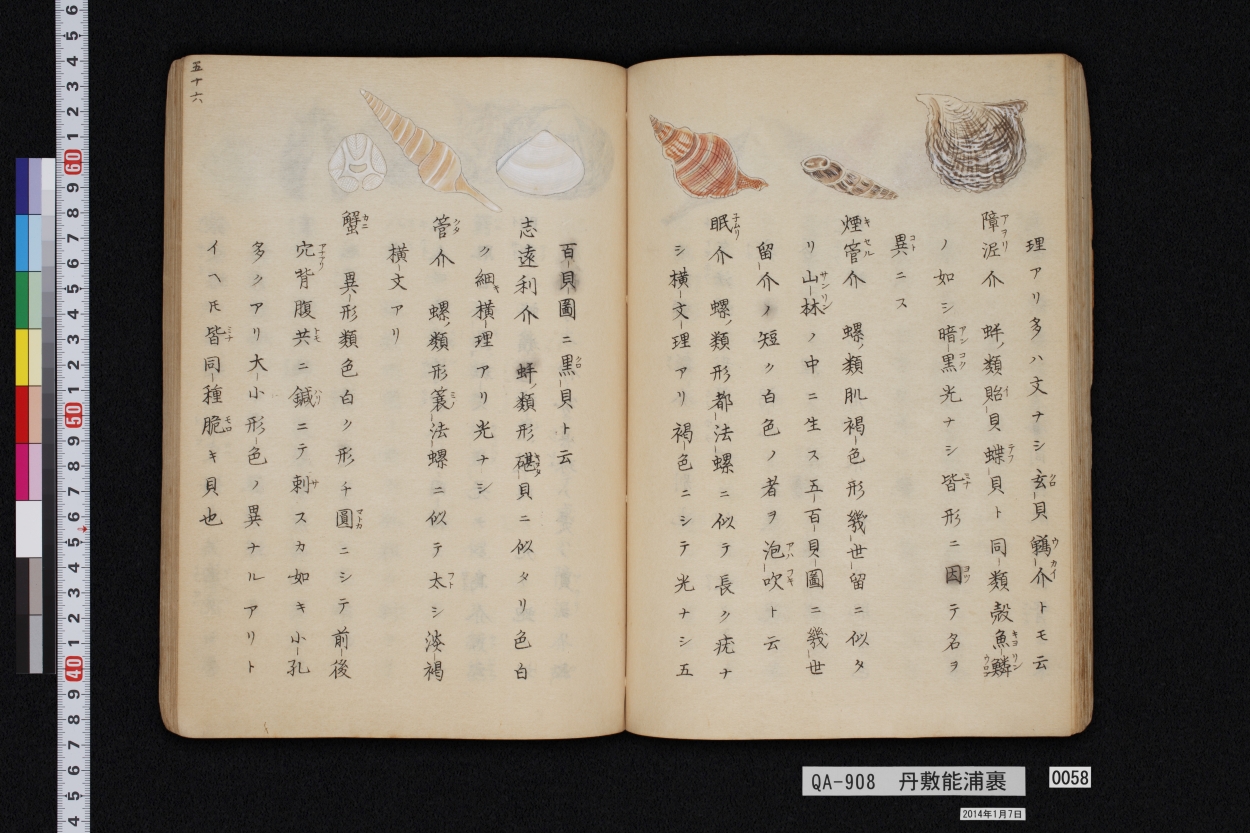 理アリ多ハ文ナシ玄貝鵜介トモ云
障泥介　蚌ノ類貽貝蝶貝ト同類殻魚鱗
ノ如シ暗黒光ナシ皆形ニ因テ名ヲ
異ニス
煙管介　螺ノ類肌褐色形幾世留ニ似タ
リ山林ノ中ニ生ス五百貝圖ニ幾世
留介ノ短ク白色ノ者ヲ泡吹ト云
眠介　螺ノ類形都法螺ニ似テ長ク疣ナ
シ横文理アリ褐色ニシテ光ナシ五
百貝圖ニ黒貝ト云
志遠利介　蚌ノ類形碪貝ニ似タリ色白
ク細横理アリ光ナシ
管介　螺ノ類形簑法螺ニ似テ太シ淡褐
横文アリ
蟹　異形類色白ク形チ圓ニシテ前後
穴背腹共ニ鍼ニテ刺スカ如キ小孔
多クアリ大小形色ノ異ナルアリト
イヘ𪜈皆同種脆キ貝也
五十六
QA-908　丹敷能浦裹
0058
2014年1月7日